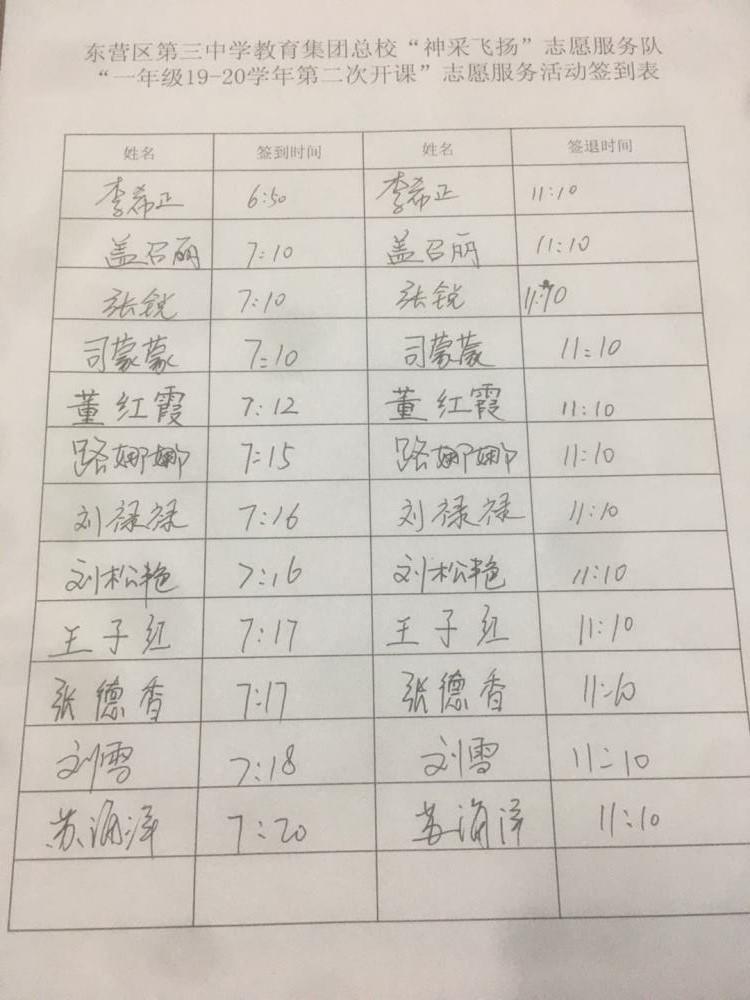 东营区第三中学教育集团总校“神采飞扬”志愿服务队
“一年级19-20学年第二次开课”志愿服务活动签到表
姓名 签到时间 姓名 签退时间
李希正 6:50 李希正 11:10
盖召丽 7:10 盖召丽 11:10
张锐 7:10 张锐 11:10
司蒙蒙 7:10 司蒙蒙 11:10
董红霞 7:12 董红霞 11:10
路娜娜 7:15 路娜娜 11:10
刘禄禄 7:16 刘禄禄 11:10
刘松艳 7:16 刘松艳 11:10
王子红 7:17 王子红 11:10
张德香 7:17 张德香 11:10
刘雪 7:18 刘雪 11:10
苏海洋 7:20 苏海洋 11:10